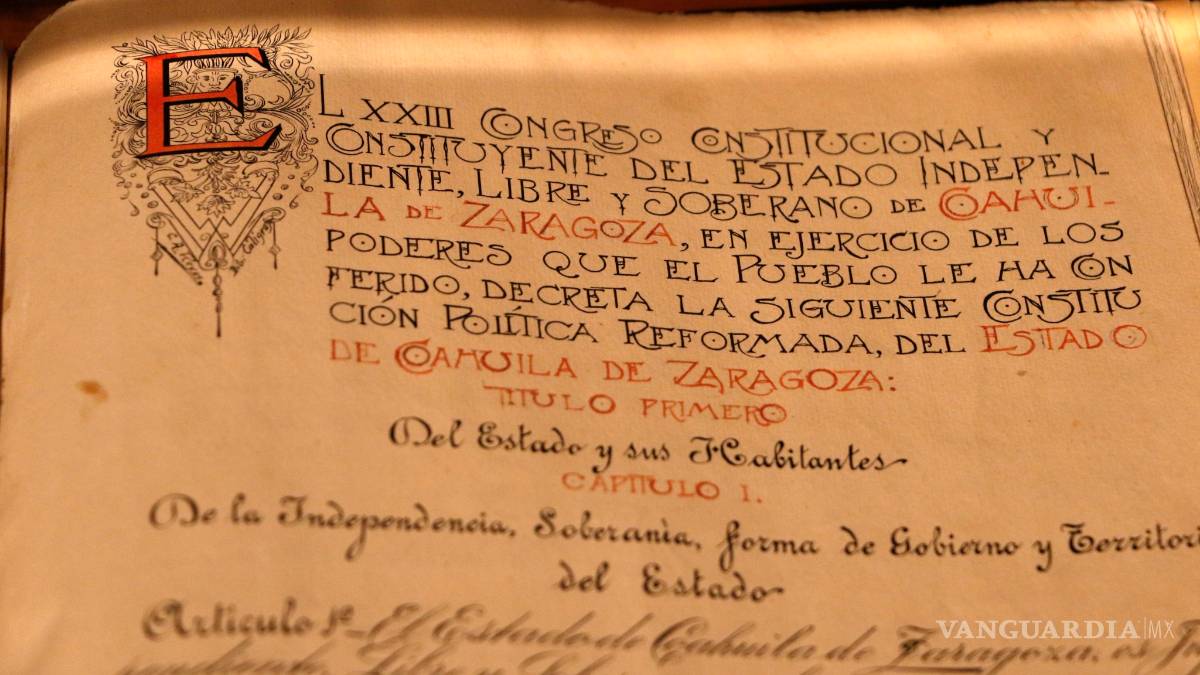 EL XXIII CONGRESO CONSTITUCIONAL Y
CONSTITUYENTE DEL ESTADO INDEPEN-
DIENTE, LIBRE Y SOBERANO DE COAHUI-
LA DE ZARAGOZA, EN EJERCICIO DE LOS
PODERES QUE EL PUEBLO LE HA CON
FERIDO, DECRETA LA SIGUIENTE CONSTITU
CIÓN POLÍTICA REFORMADA, DEL ESTADO
DE COAHUILA DE ZARAGOZA:
TITULO PRIMERO
Del Estado y sus Habitantes
CAPITULO I.
De la Independencia, Soberanìa, forma de Gobierno y Territori
del Estado
Artículo 1º.- El Estado de Coahuila de Zaragoza, es
Libre y
VANGUARDIA|MX